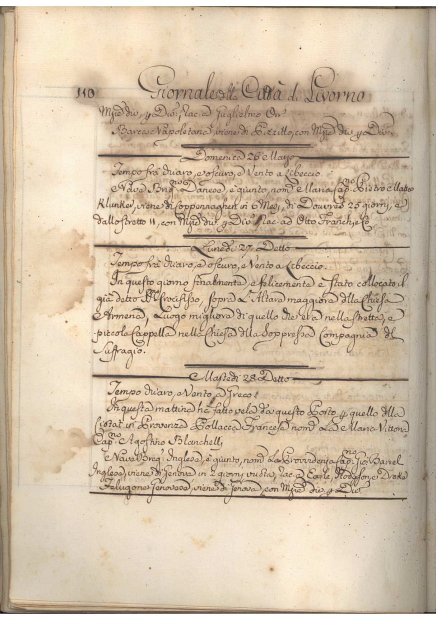 110 Giornale della Città di Livorno
Mrzie div. p Div. Rac. ad Guglielmo
Barca Napoletana, viene di, con Mrzie div. p Div.
Domenica 26 Marzo
Tempo frà chiaro, e oscuro, e Vento a Libeccio.
Nave Danese, è giunto, nom. Maria Cap.no Pietro
Klunker, viene di Coppenaghen in 6 Mesi, di Douvres 25 giorni, e
dallo stretto 11, con Mrzie div. p Div. Rac. ad Otto Franck, e C.
Lunedì 27 Detto
Tempo frà chiaro, e oscuro, e Vento a Libeccio.
In questo giorno finalmente è felicemente stato collocato il
già detto SS. Crocifisso, sopra l'Altare maggiore della Chiesa
Armena, Luogo migliore di quello che era nella stretta, e
piccola Cappella nella Chiesa della Soppressa Compagnia del
Suffragio.
Martedì 28 Detto
Tempo chiaro, e Vento, a Greco.
In questa mattina ha fatto vela da questo Porto p quello della
Ciotat in Provenza Pollacca Francese nom. La Maria Vittoria
Cap.no Agostino Blanchelly
Nave Inglese, è giunto, nom. La Providenza Cap.no Gio
Inglese, viene di Genova in 2 giorni vuota, rac. a Earle, Hodgson e Drake
Felugone Genovese, viene di Genova, con Mrzie div. p Div.